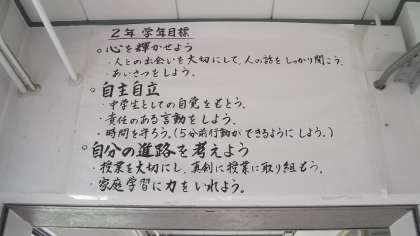 2年 学年目標
○心を輝かせよう
・人との出会いを大切にして、人の話をしっかり聞こう。
・あいさつをしよう。
○自主自立
・中学生としての自覚をもとう。
・責任のある言動をしよう。
・時間を守ろう。(5分前行動ができるようにしよう。)
○自分の進路を考えよう
・授業を大切にし、真剣に授業に取り組もう。
・家庭学習に力をいれよう。